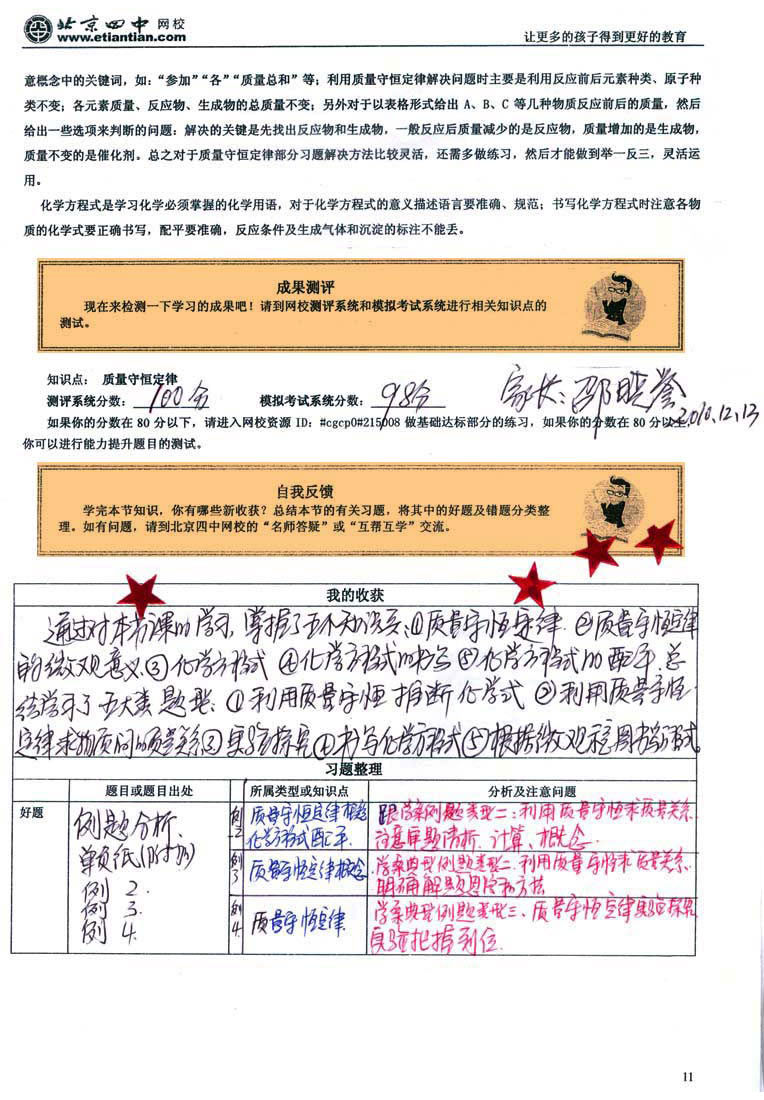 北京四中 网校
www.etiantian.com
让更多的孩子得到更好的教育
意概念中的关键词，如：“参加”“各”“质量总和”等；利用质量守恒定律解决问题时主要是利用反应前后元素种类、原子种
类不变；各元素质量、反应物、生成物的总质量不变；另外对于以表格形式给出 A、B、C 等几种物质反应前后的质量，然后
给出一些选项来判断的问题：解决的关键是先找出反应物和生成物，一般反应后质量减少的是反应物，质量增加的是生成物，
质量不变的是催化剂。总之对于质量守恒定律部分习题解决方法比较灵活，还需多做练习，然后才能做到举一反三，灵活运
用。
化学方程式是学习化学必须掌握的化学用语，对于化学方程式的意义描述语言要准确、规范；书写化学方程式时注意各物
质的化学式要正确书写，配平要准确，反应条件及生成气体和沉淀的标注不能丢。
成果测评
现在来检测一下学习的成果吧！请到网校测评系统和模拟考试系统进行相关知识点的
测试。
知识点： 质量守恒定律
测评系统分数：100分 模拟考试系统分数：98分 家长：邵晓誉
2010.12.13
如果你的分数在 80 分以下，请进入网校资源 ID：#cgcp0#215008 做基础达标部分的练习，如果你的分数在 80 分以上，
你可以进行能力提升题目的测试。
自我反馈
学完本节知识，你有哪些新收获？总结本节的有关习题，将其中的好题及错题分类整
理。如有问题，请到北京四中网校的“名师答疑”或“互帮互学”交流。
我的收获
通过对本节课的学习，掌握了五个知识点：①质量守恒定律 ②质量守恒定律
的微观意义 ③化学方程式 ④化学方程式的书写 ⑤化学方程式的配平。总
结学习了五大类题型：①利用质量守恒推断化学式 ②利用质量守恒
定律求物质间的质量关系 ③实验探究 ④书写化学方程式 ⑤根据微观示意图书写方程式
习题整理
题目或题目出处 所属类型或知识点 分析及注意问题
好题
例题分析、
单页纸(附加)
例 2.
例 3.
例 4.
例2 质量守恒定律概念 化学方程式配平. 学案例题类型二：利用质量守恒求质量关系. 注意审题清析、计算、概念
例3 质量守恒定律概念 学案典型例题类型二、利用质量守恒求质量关系. 明确解题思路和方法
例4. 质量守恒定律 学案典型例题类型三、质量守恒定律实验探究 实验把握到位.
11